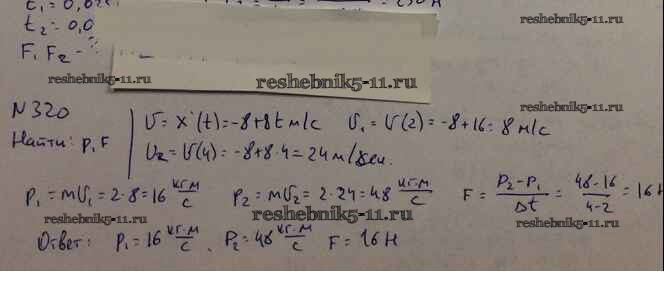 t₂ = 0,0
F₁ F₂ - ?
reshebnik5-11.ru
reshebnik5-11.ru
reshebnik5-11.ru
N320
Найти: p, F
υ = x'(t) = -8+8t м/с υ₁ = υ(2) = -8+16 = 8 м/с
υ₂ = υ(4) = -8+8·4 = 24 м/сек.
reshebnik5-11.ru
reshebnik5-11.ru
p₁ = mυ₁ = 2·8 = 16 кг·м/с p₂ = mυ₂ = 2·24 = 48 кг·м/с F = (p₂-p₁)/Δt = (48-16)/(4-2) = 16 Н
reshebnik5-11.ru
reshebnik5-11.ru
reshebnik5-11.ru
Ответ: p₁ = 16 кг·м/с, p₂ = 48 кг·м/с F = 16 Н